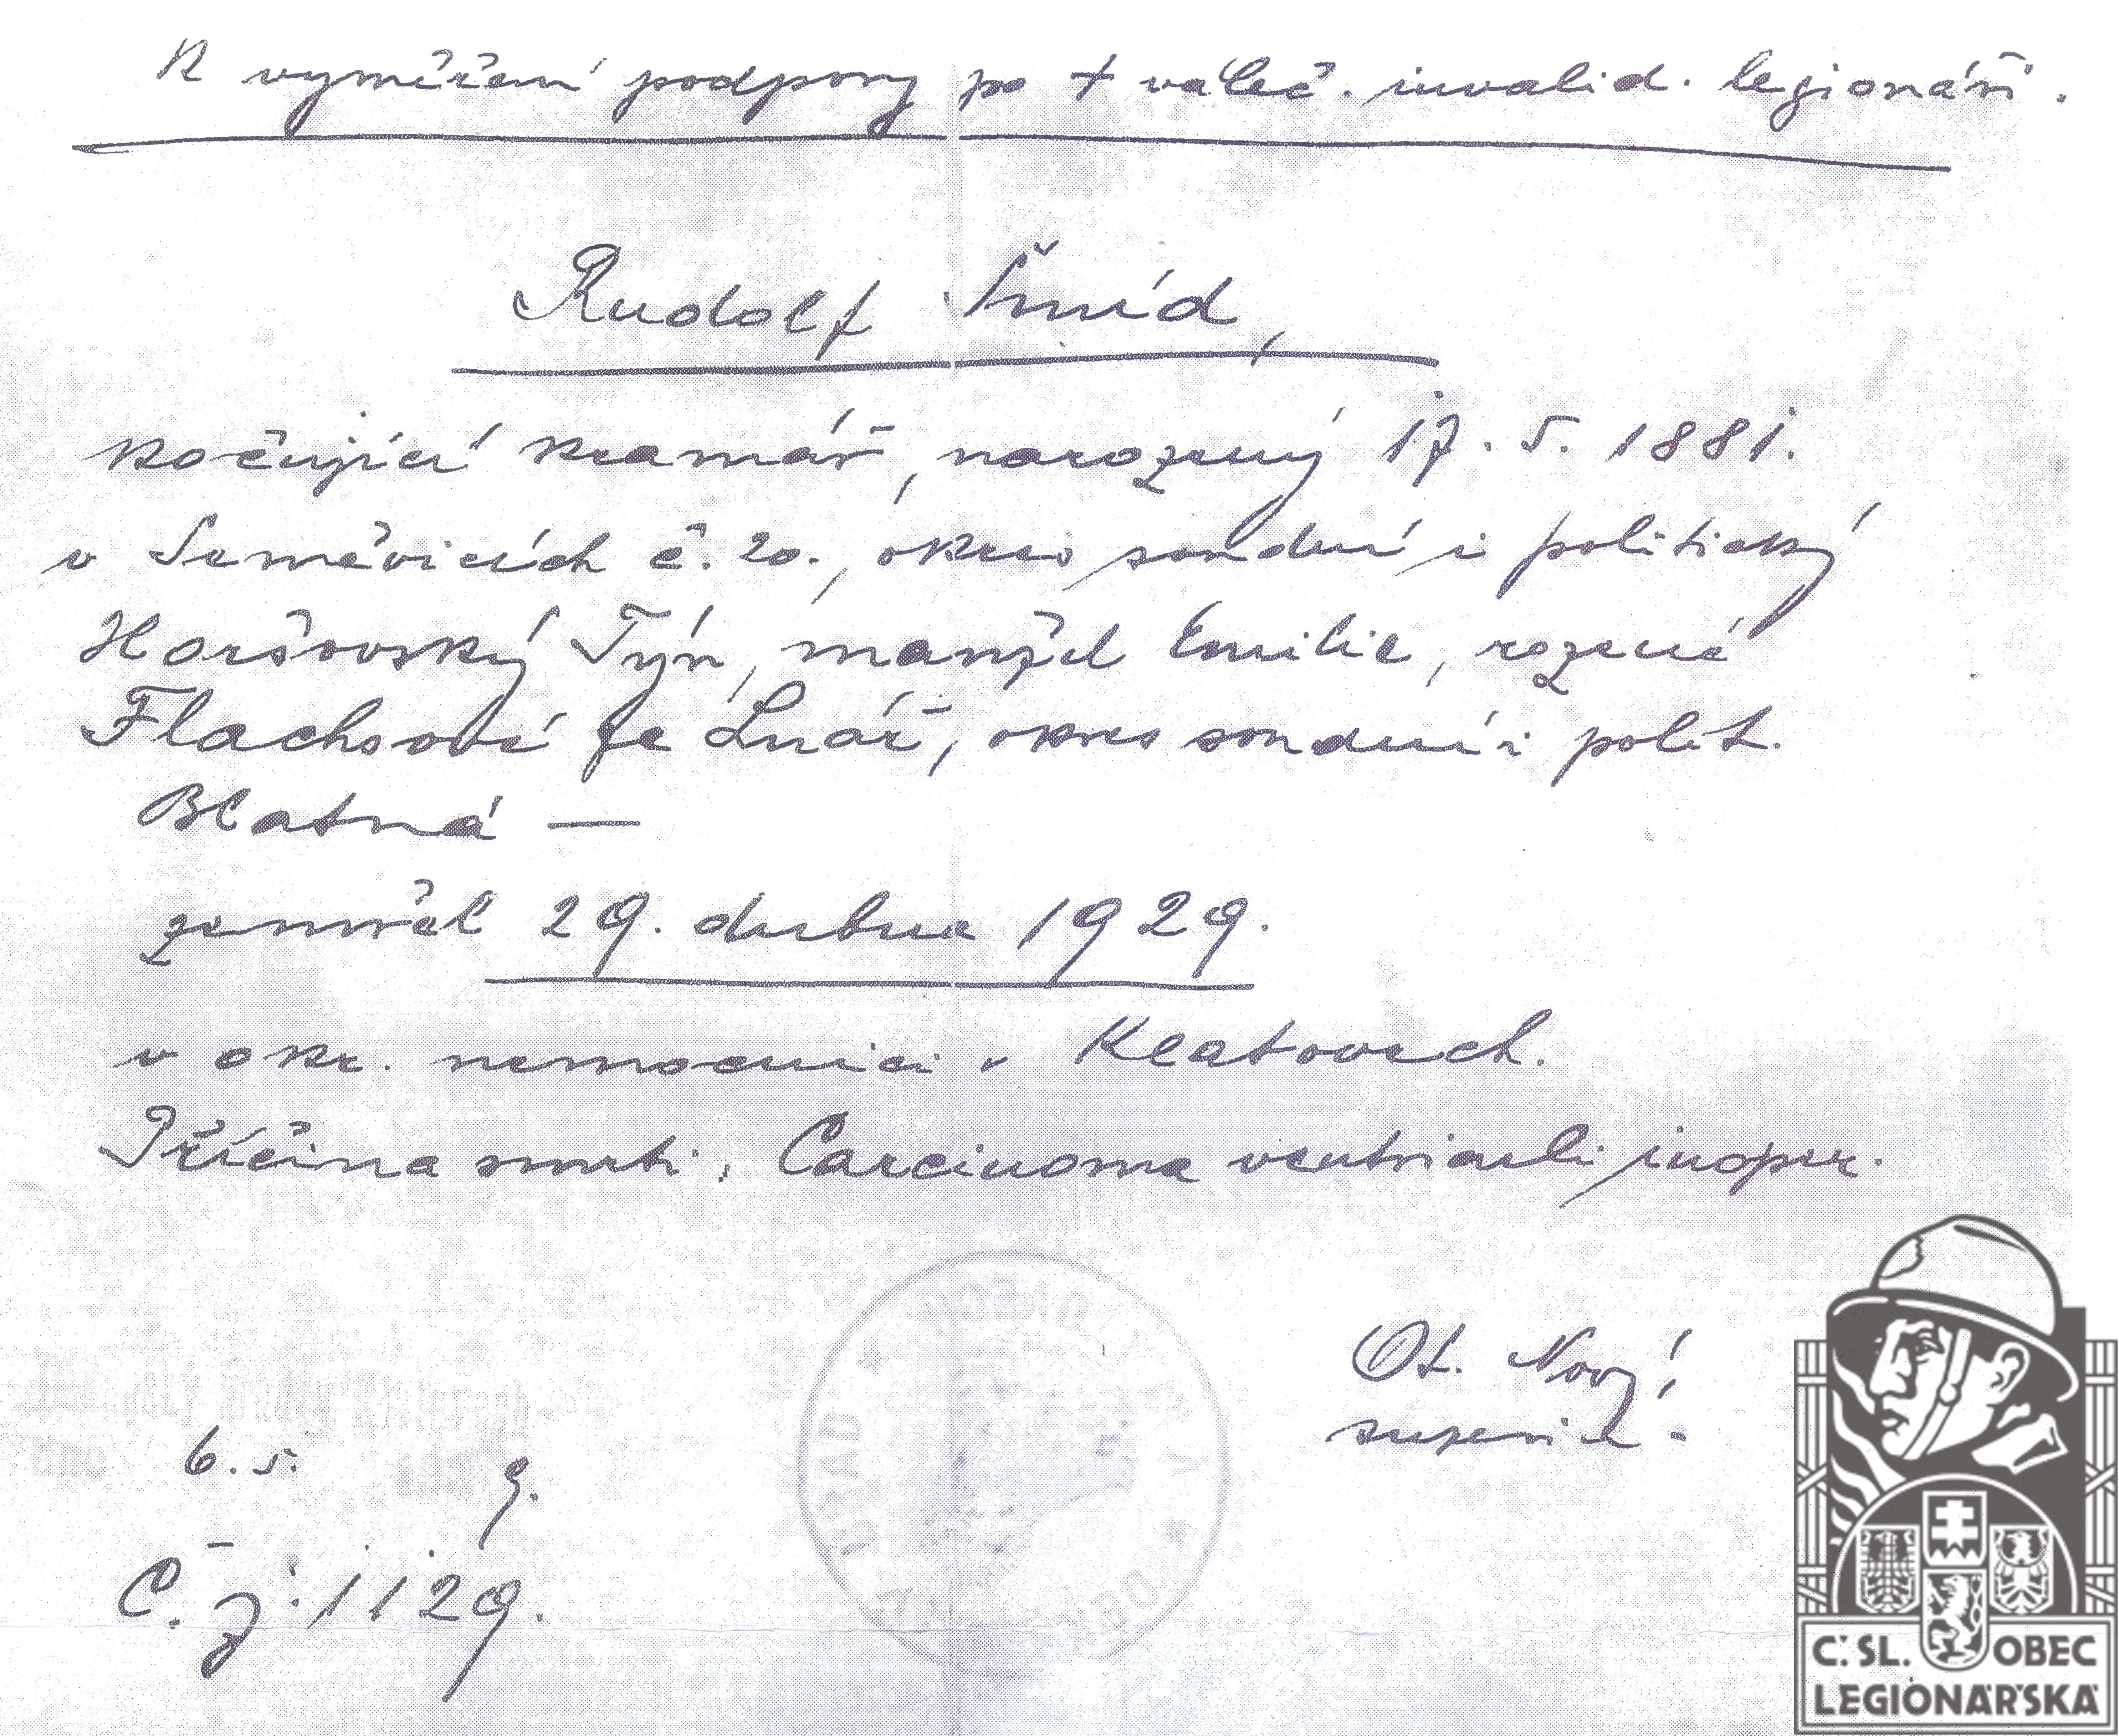 K vyměření podpory po † váleč. invalid. legionáři.
Rudolf Šmíd,
kočující kramář, narozený 17. 5. 1881.
v Seměvicích č. 20., okres soudní i politický
Horšovský Týn, manžel Emilie, rozené
Flachsové ze Lnář, okres soudní i polit.
Blatná —
zemřel 29. dubna 1929.
v okr. nemocnici v Klatovech.
Příčina smrti: Carcinoma ventriculi inoper.
Ot. Nový
6. 5. 9.
Č. j. 1129.
Č.SL. OBEC
LEGIONÁŘSKÁ